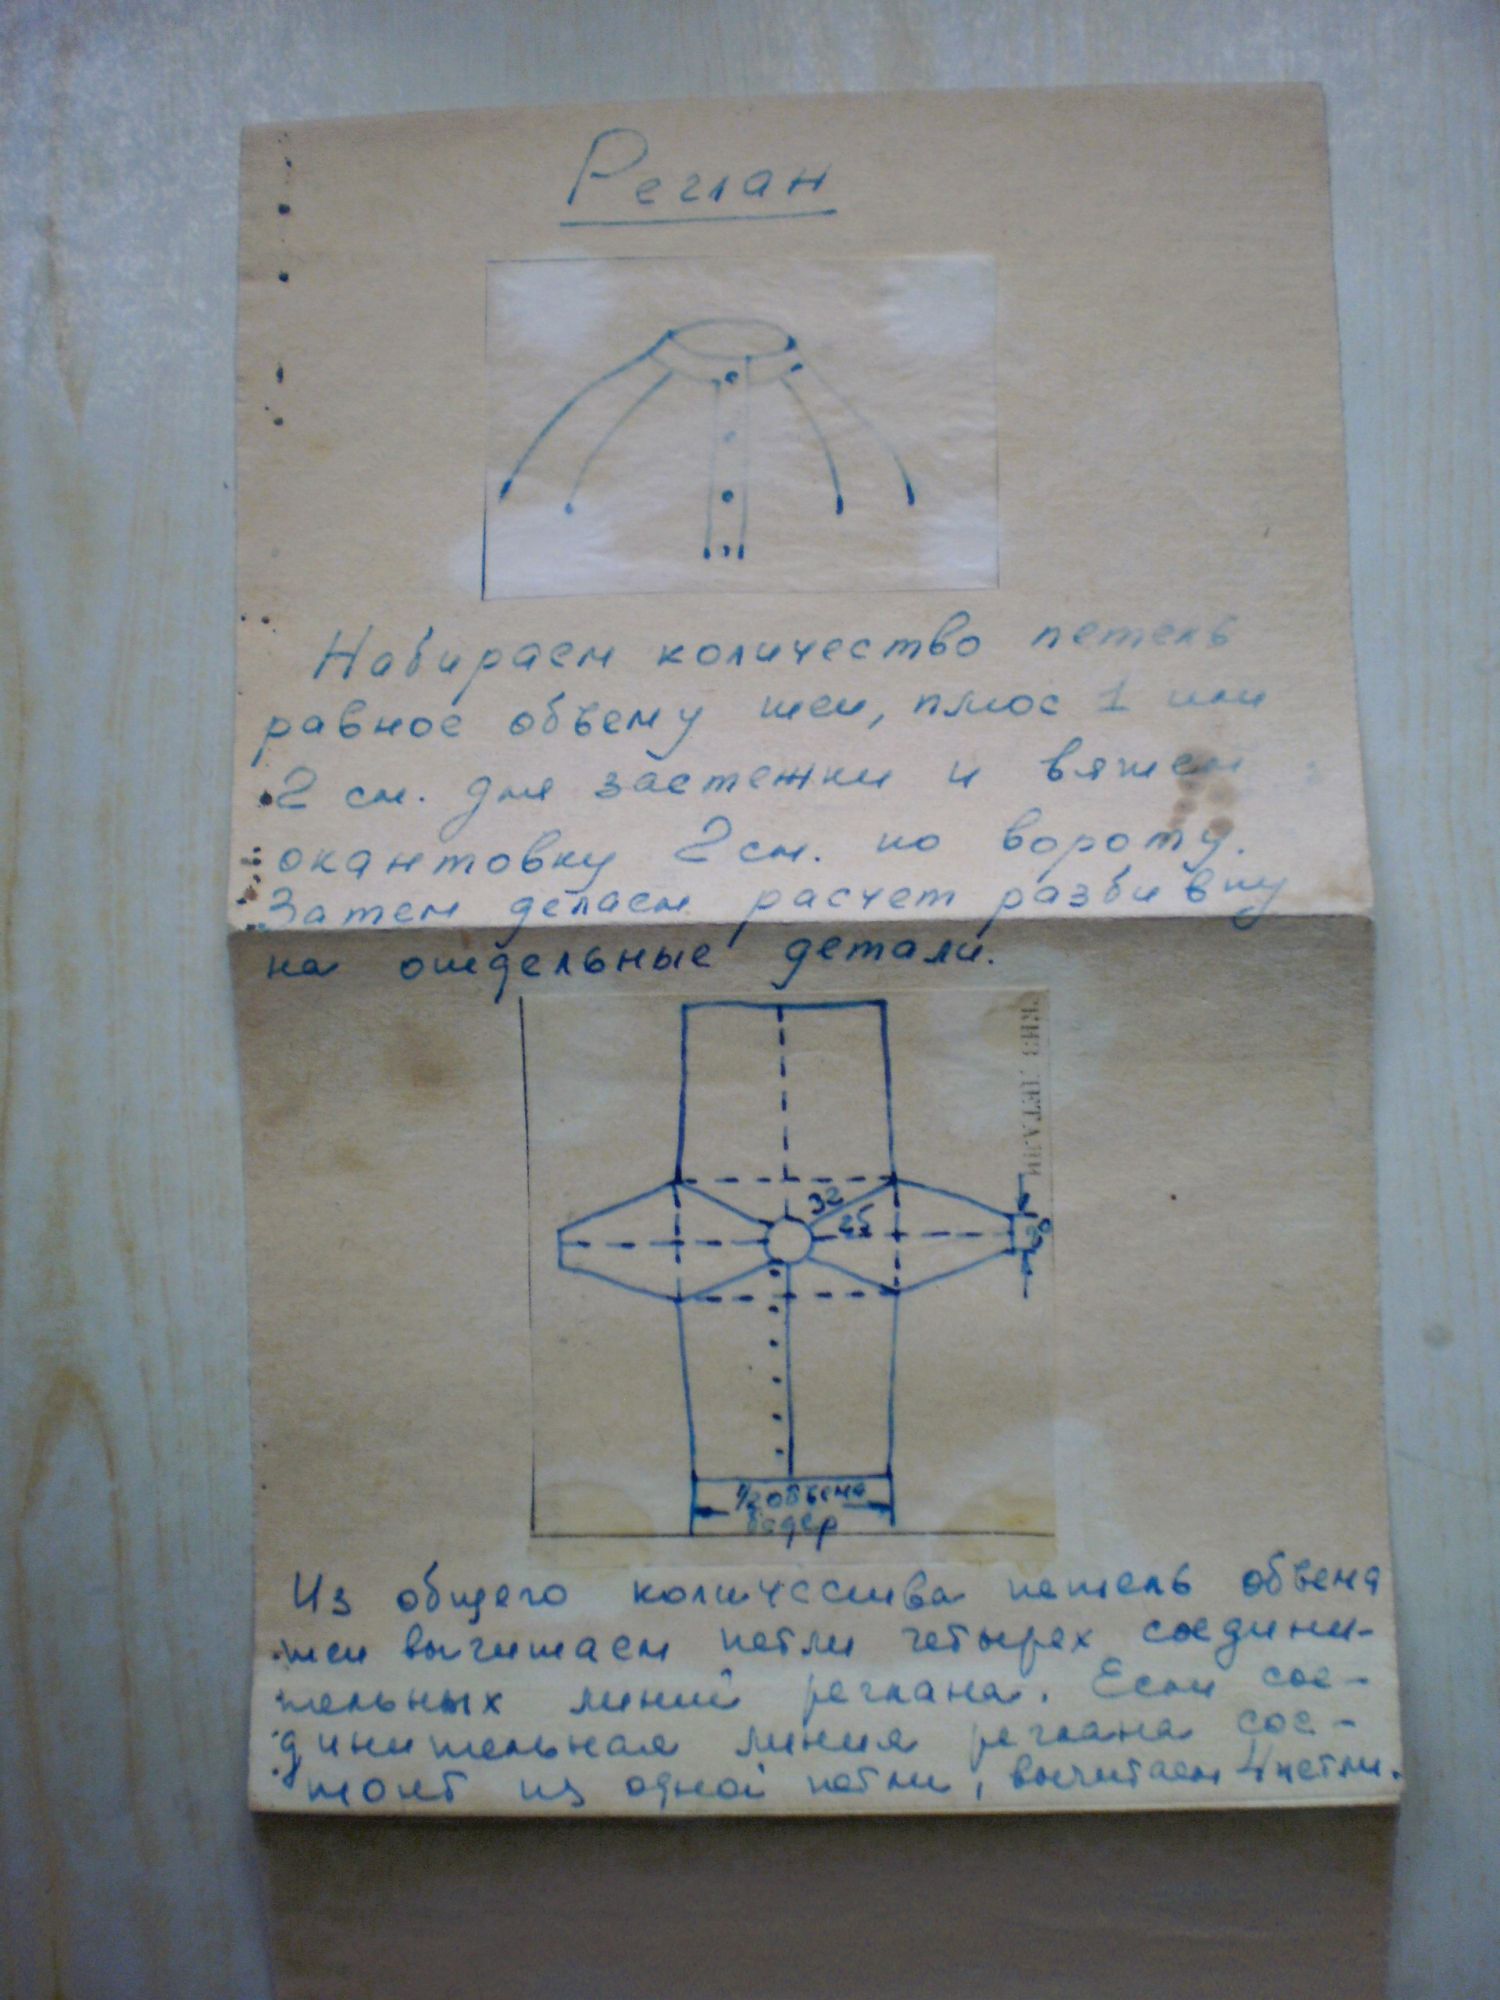 Реглан
Набираем количество петель
равное объему шеи, плюс 1 или
2 см. для застежки и вяжем
окантовку 2 см. по вороту.
Затем делаем расчет разбивку
на отдельные детали.
32
25
1/2 объема
бедер
Из общего количества петель объема
шеи вычитаем петли четырех соедини-
тельных линий реглана. Если сое-
динительная линия реглана сос-
тоит из одной петли, вычитаем 4 петли.